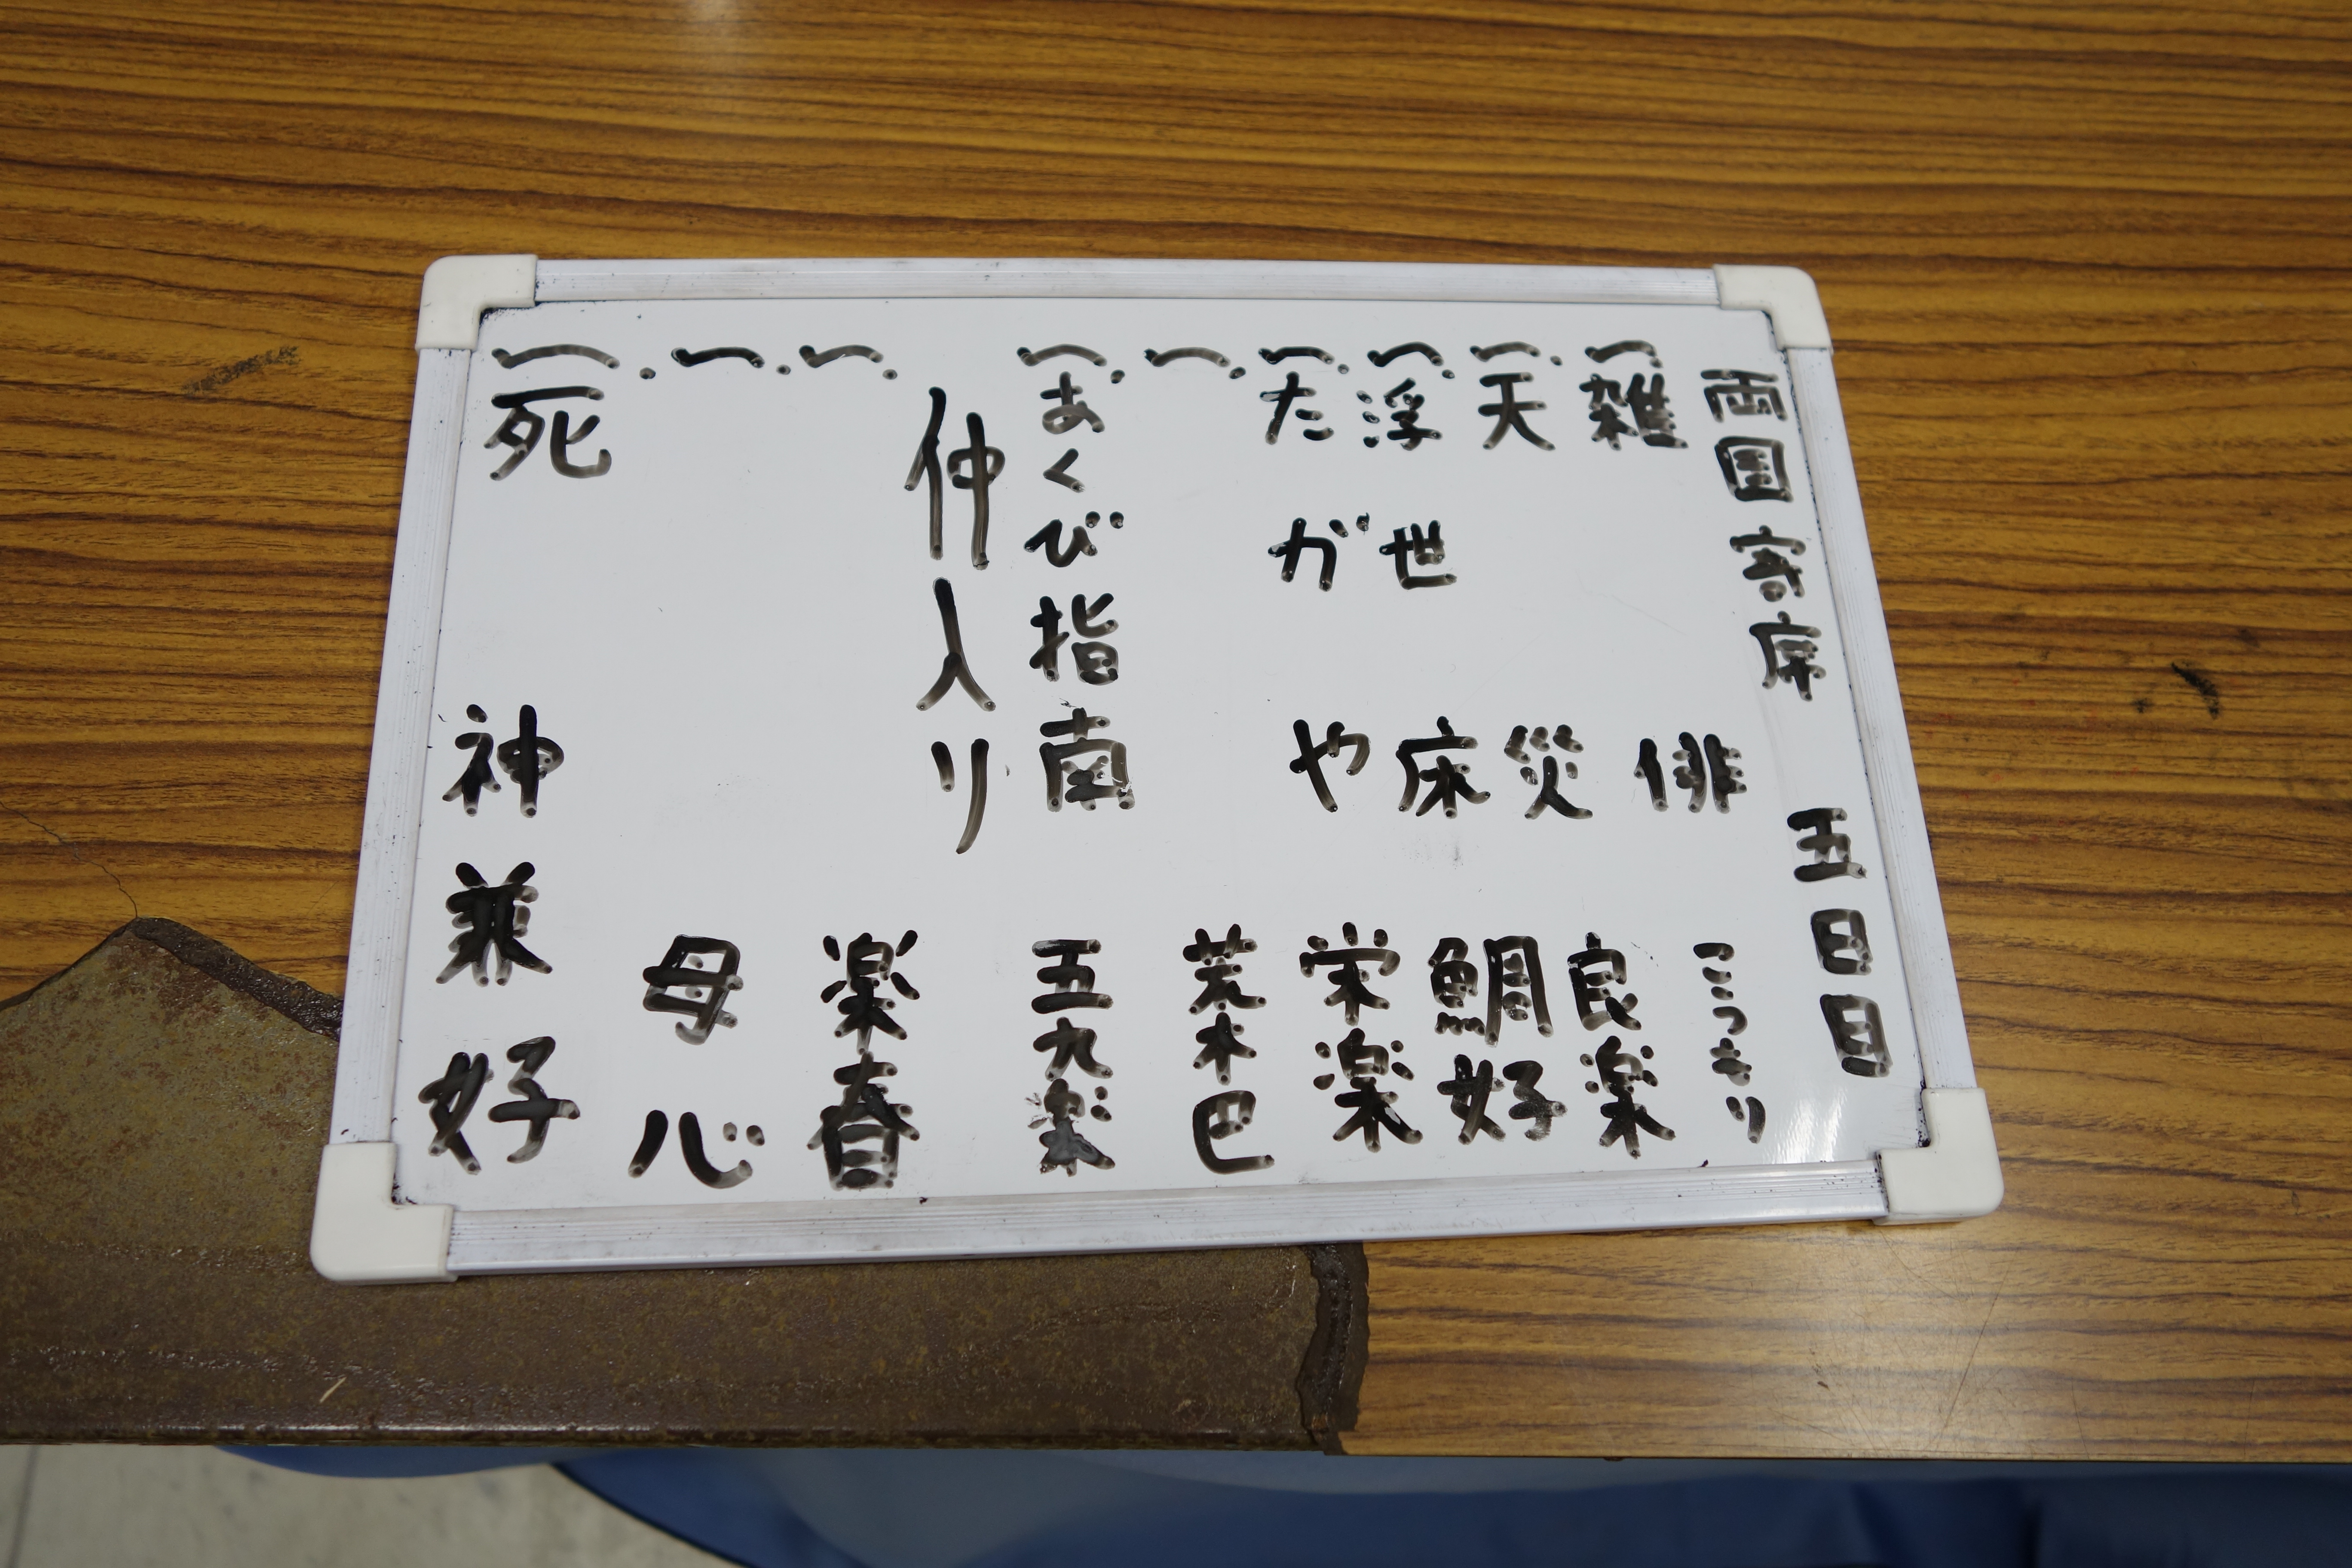 両国寄席 五日目
一、雑俳 こっきり
一、天災 良楽
一、浮世床 鯛好
一、たがや 栄楽
一、 荒木巴
一、あくび指南 五九楽
仲入り
一、 楽春
一、 母心
一、死神 兼好